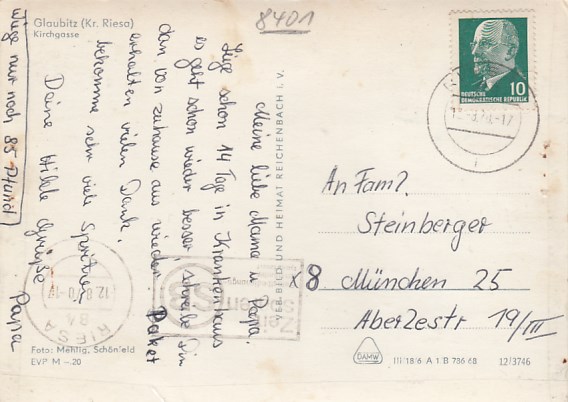 8401
Glaubitz (Kr. Riesa)
Kirchgasse
Meine liebe Mama u. Papa.
Liege schon 14 Tage in Krankenhaus
es geht schon wieder besser, schreibe Dir
dan von zuhause aus wieder. Paket
erhalten vielen Dank.
bekomme sehr viele Spritzen
Deine Hilde Grüße Papa
Wiege nur noch 85 Pfund!
VEB BILD UND HEIMAT REICHENBACH I. V.
DEUTSCHE
DEMOKRATISCHE REPUBLIK
10
An Fam.
Steinberger
x 8 München 25
Aberlestr 19/III
RIESA
84
12.8.70
Foto: Mehlig, Schönfeld
EVP M –.20
DAMW
III/18/6 A 1 B 786 68
12/3746